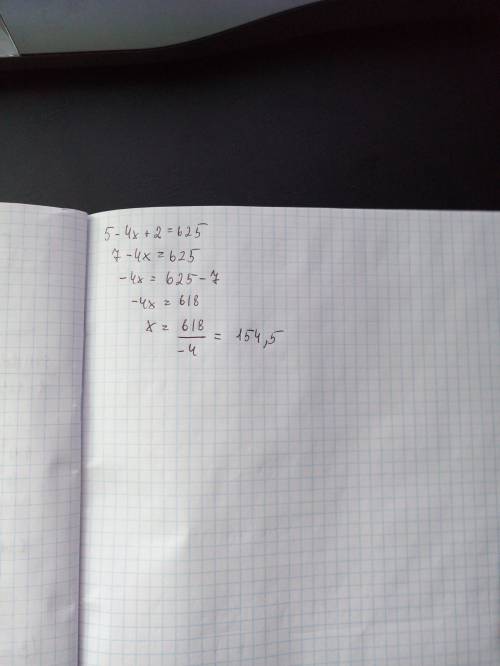 5-4x+2=625
7-4x=625
-4x=625-7
-4x=618
x=618/-4=154,5